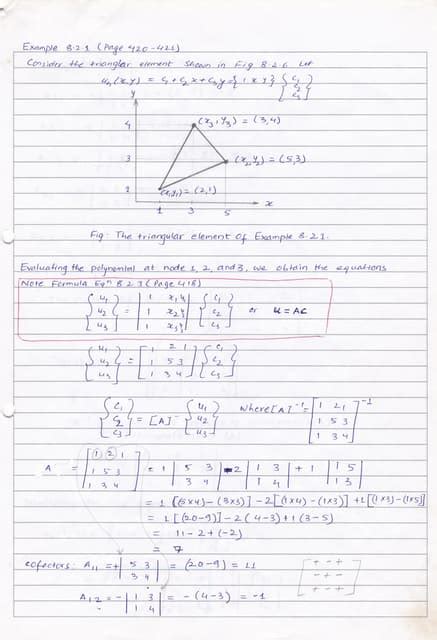 Example 8.2.1 (Page 420-421)
Consider the triangular element shown in Fig 8.2.6 Let
u₁(x,y) = c₁+c₂x+c₃y = {1 x y} {c₁ c₂ c₃}
y
4
(x₃,y₃) = (3,4)
3
(x₂,y₂) = (5,3)
2
(x₁,y₁) = (2,1)
x
1 3 5
Fig: The triangular element of Example 8.2.1.
Evaluating the polynomial at node 1, 2, and 3, we obtain the equations
Note Formula Eqⁿ 8.2.3 (Page 418)
{u₁ | 1 x₁ y₁ | {c₁
u₂ = | 1 x₂ y₂ | c₂ or u = AC
u₃} | 1 x₃ y₃ | c₃}
{u₁ [1 2 1 {c₁
u₂ = 1 5 3 c₂
u₃} 1 3 4] c₃}
{c₁ {u₁ where [A]⁻¹ = [1 2 1]⁻¹
c₂ = [A]⁻ u₂ 1 5 3
c₃} u₃} 1 3 4
A = [1 2 1 = 1 |5 3 - 2 |1 3 + 1 |1 5
1 5 3 3 4| 1 4| 1 3|
1 3 4]
= 1 [(5×4) - (3×3)] - 2[(1×4) - (1×3)] + 1[(1×3) - (1×5)]
= 1 [(20-9)] - 2(4-3) + 1(3-5)
= 11 - 2 + (-2)
= 7
cofactors: A₁₁ = + |5 3 = (20-9) = 11 [+ - +
3 4| - + -
+ - +]
A₁₂ = - |1 3 = -(4-3) = -1
1 4|